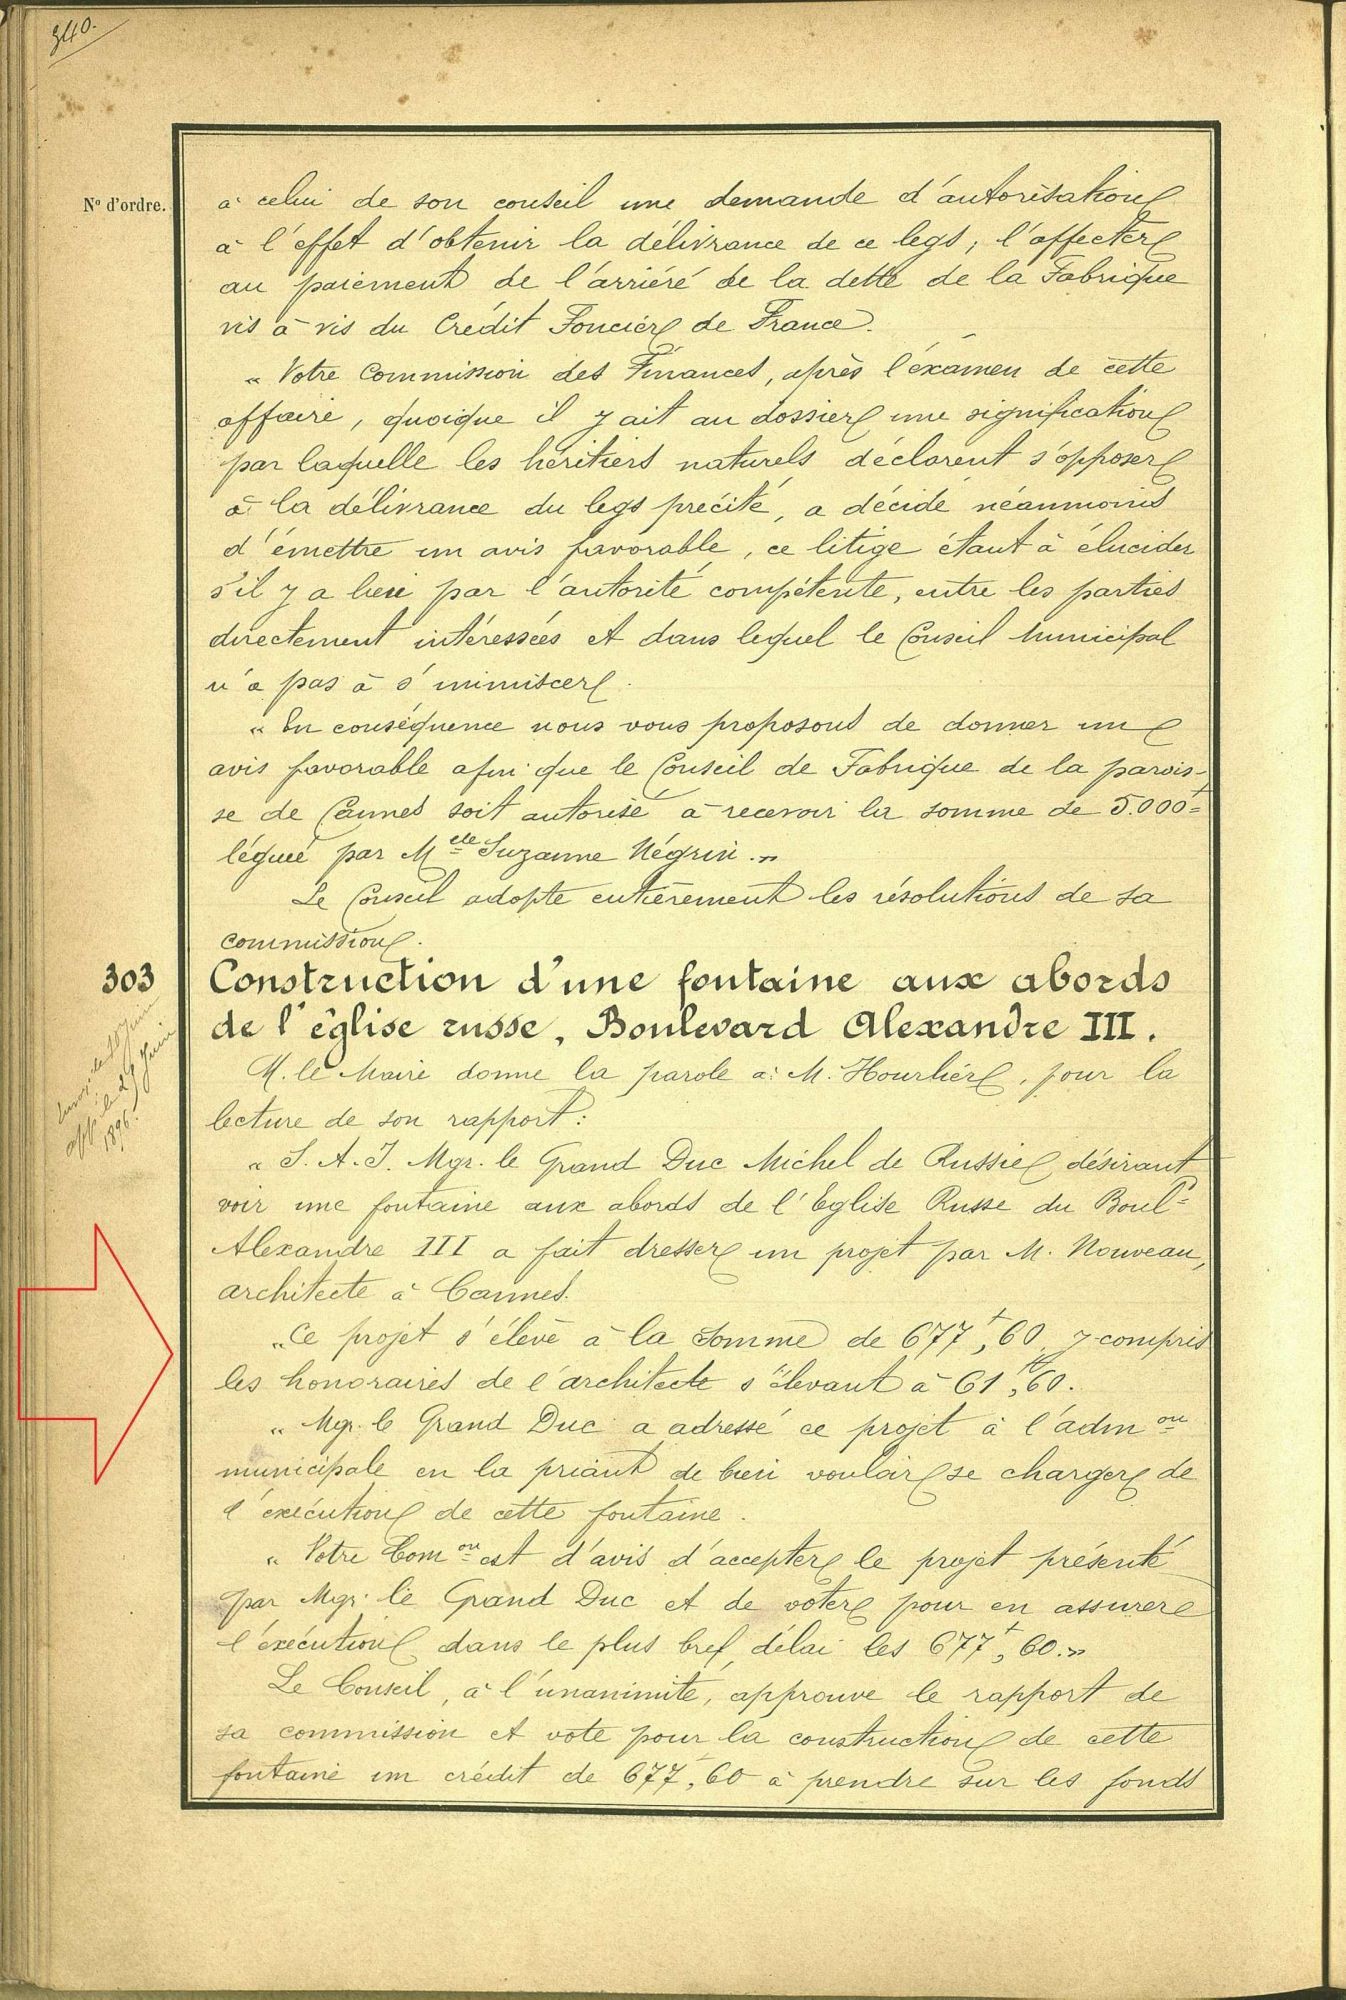 340.
N° d'ordre.
à celui de son conseil une demande d'autorisation
à l'effet d'obtenir la délivrance de ce legs, l'affecter
au paiement de l'arriéré de la dette de la Fabrique
vis à vis du Crédit Foncier de France.
" Votre Commission des Finances, après l'éxamen de cette
affaire, quoique il y ait au dossier une signification
par laquelle les héritiers naturels déclarent s'opposer
à la délivrance du legs précité, a décidé néanmoins
d'émettre un avis favorable, ce litige étant à élucider
s'il y a lieu par l'autorité compétente, entre les parties
directement intéressées et dans lequel le Conseil Municipal
n'a pas à s'immiscer.
" En conséquence nous vous proposons de donner un
avis favorable afin que le Conseil de Fabrique de la parois-
se de Cannes soit autorisé à recevoir la somme de 5.000f
léguée par Melle Suzanne Négrin. "
Le Conseil adopte entièrement les résolutions de sa
commission.
303
Construction d'une fontaine aux abords
de l'église russe, Boulevard Alexandre III.
M. le Maire donne la parole à M. Hourlier, pour la
lecture de son rapport:
" S. A. I. Mgr. le Grand Duc Michel de Russie désirant
voir une fontaine aux abords de l'Eglise Russe du Bould
Alexandre III a fait dresser un projet par M. Nouveau,
architecte à Cannes.
" Ce projet s'élève à la somme de 677f,60 y compris
les honoraires de l'architecte s'élevant à 61f,60.
" Mgr. le Grand Duc a adressé ce projet à l'admon
municipale en la priant de bien vouloir se charger de
l'exécution de cette fontaine.
" Votre Comon est d'avis d'accepter le projet présenté
par Mgr. le Grand Duc et de voter pour en assurer
l'exécution dans le plus bref délai les 677f,60. "
Le Conseil, à l'unanimité, approuve le rapport de
sa commission et vote pour la construction de cette
fontaine un crédit de 677,60 à prendre sur les fonds
Juin
app. le 29 Juin
1896.